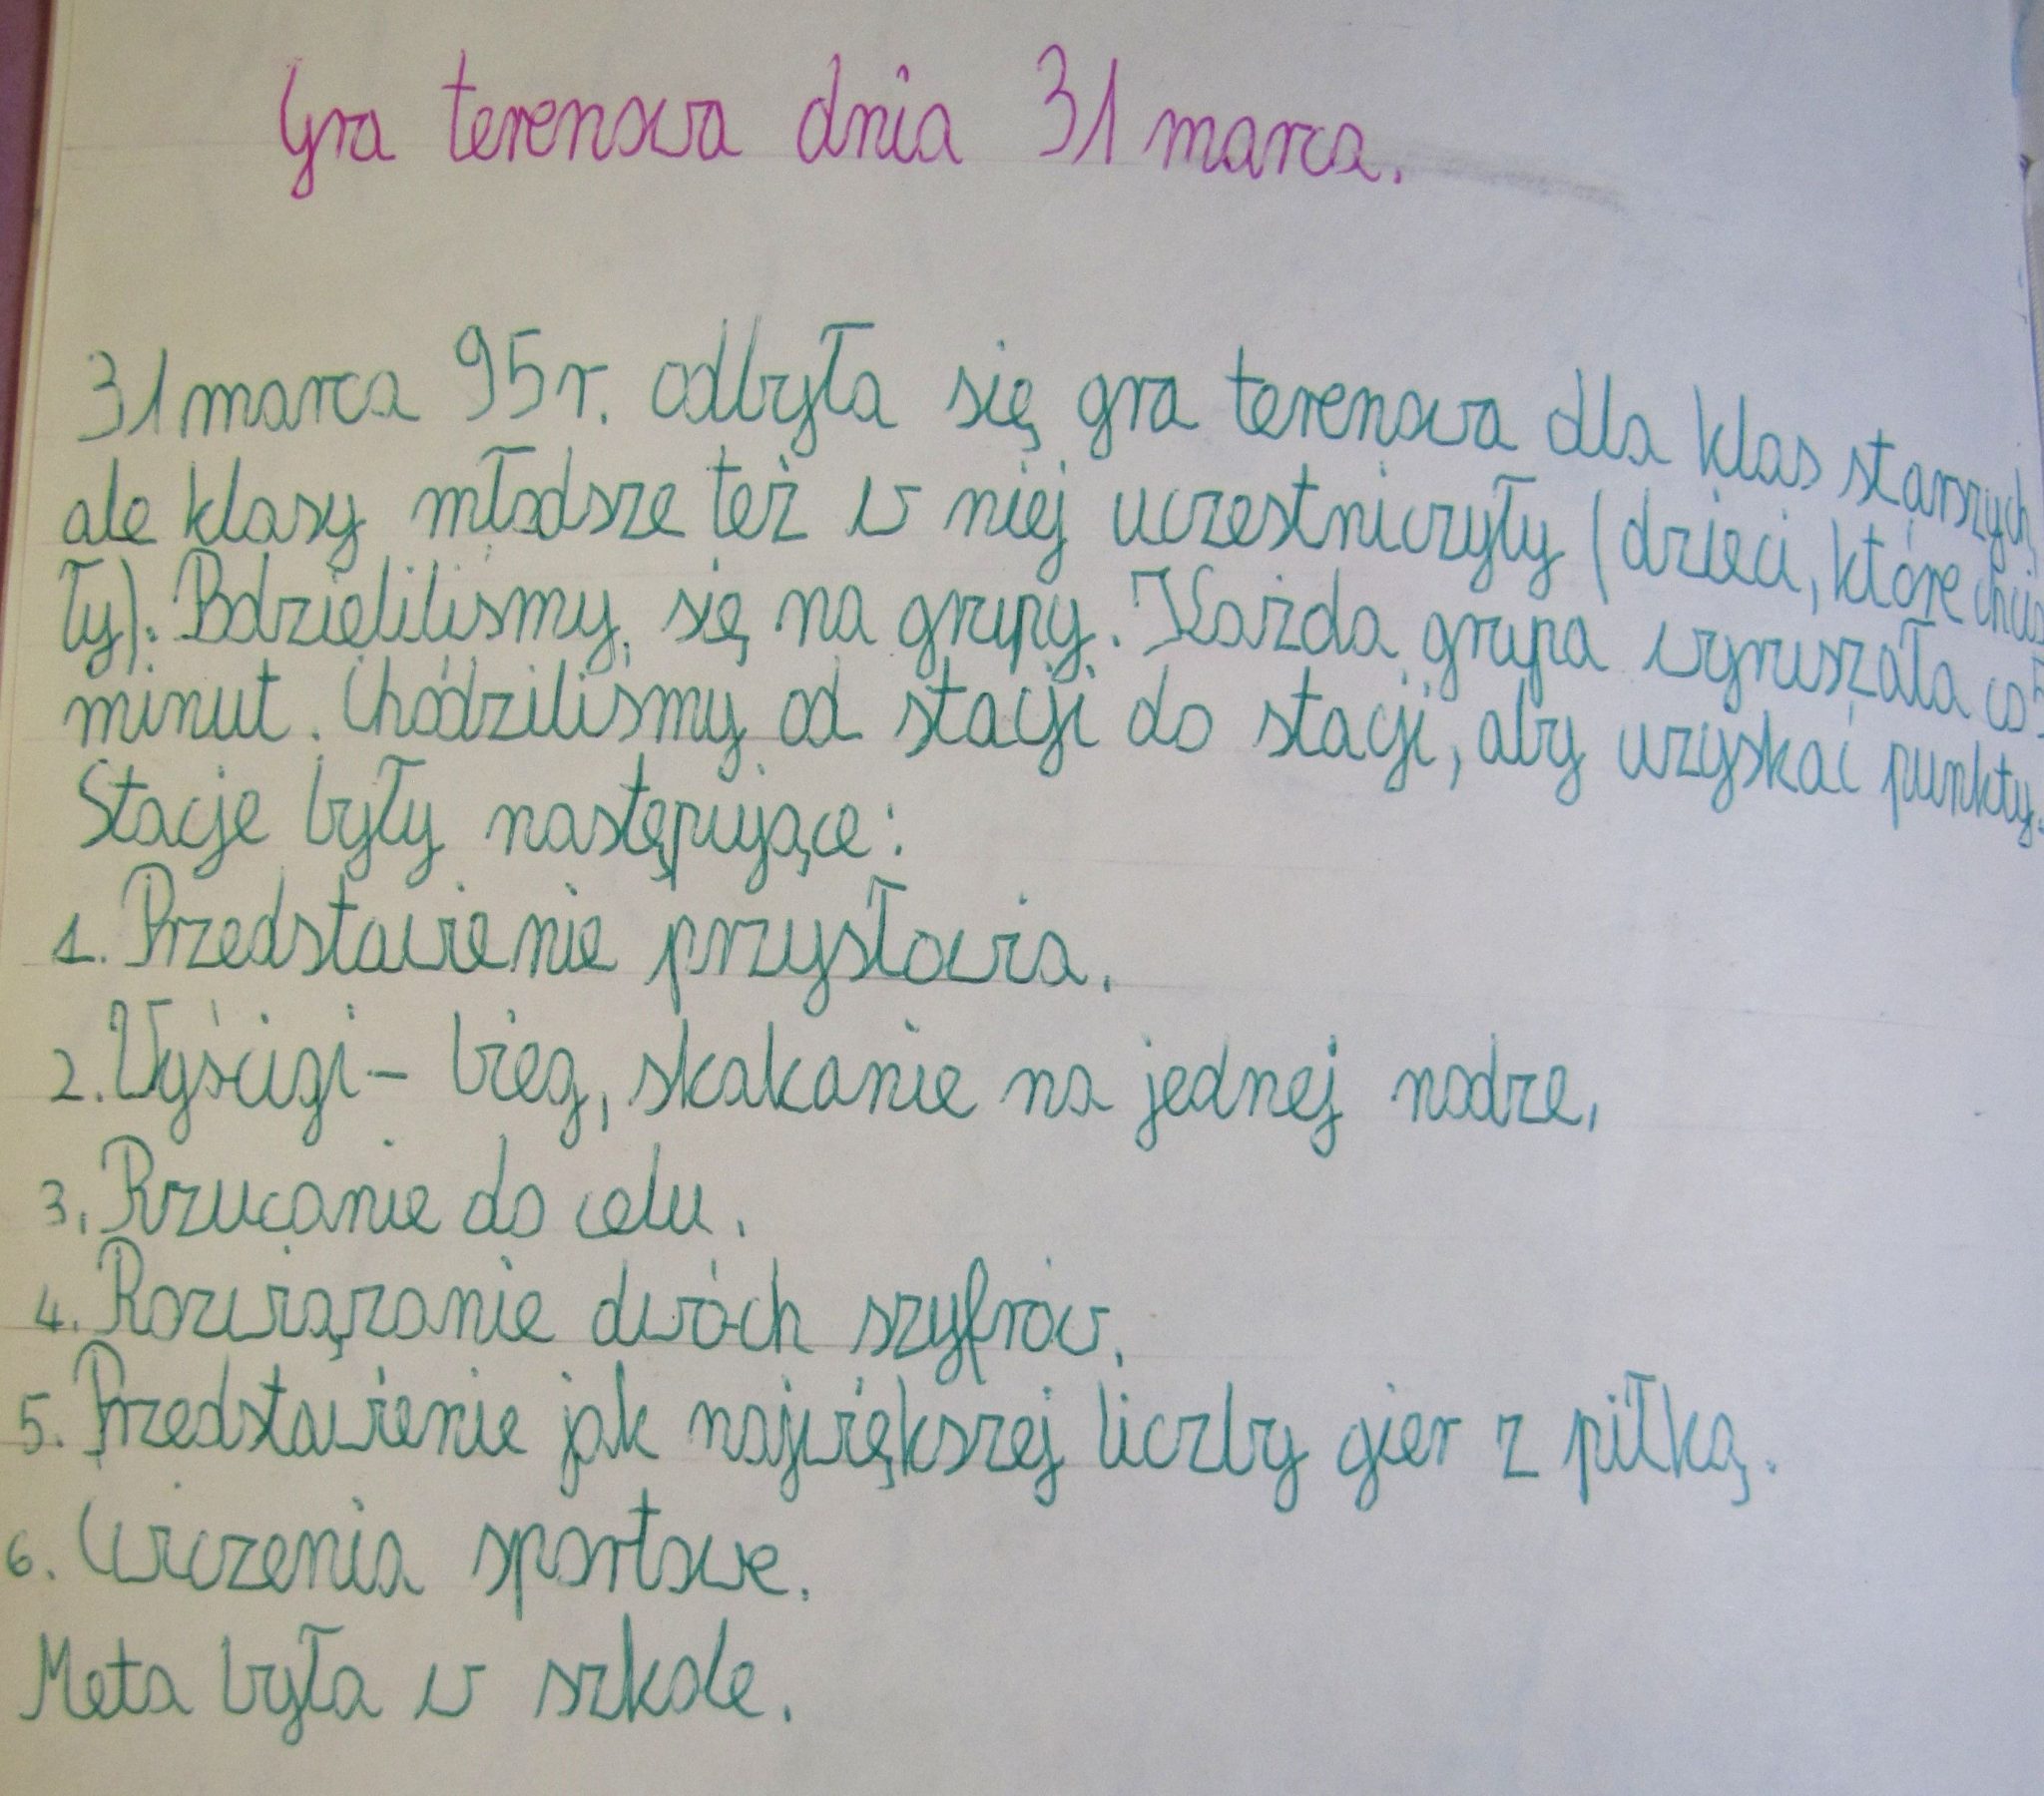 Gra terenowa dnia 31 marca.
31 marca 95r. odbyła się gra terenowa dla klas starszych,
ale klasy młodsze też w niej uczestniczyły (dzieci, które chcia
ły). Podzieliliśmy się na grupy. Każda grupa wyruszała co 5
minut. Chodziliśmy od stacji do stacji, aby uzyskać punkty.
Stacje były następujące:
1. Przedstawienie przysłowia.
2. Wyścigi - bieg, skakanie na jednej nodze,
3. Rzucanie do celu.
4. Rozwiązanie dwóch szyfrów.
5. Przedstawienie jak największej liczby gier z piłką.
6. Ćwiczenia sportowe.
Meta była w szkole.